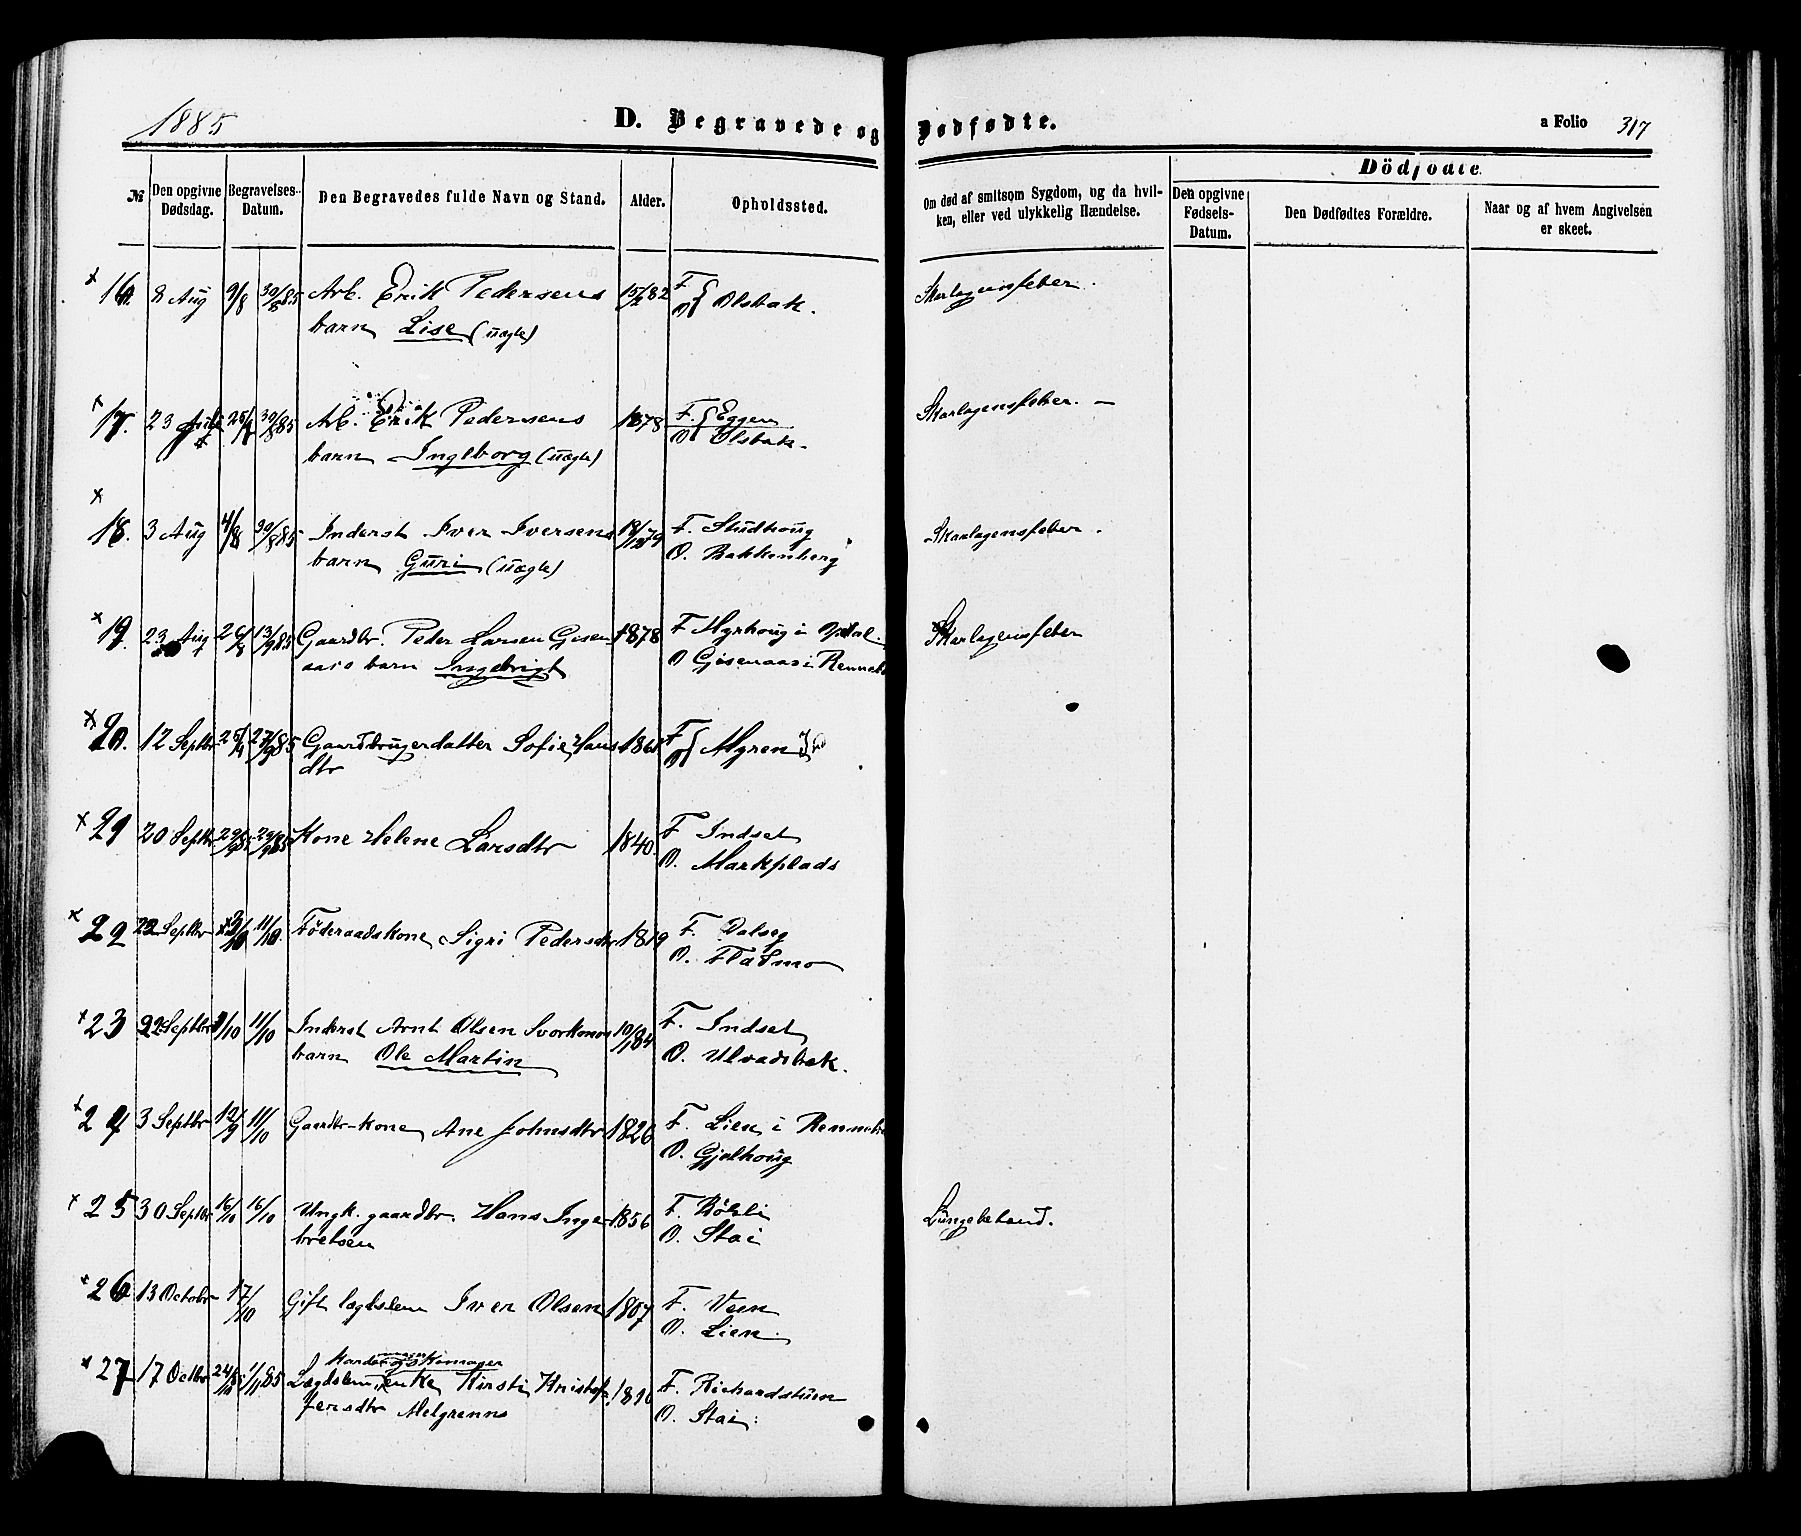 1885 D. Begravede og Dødfødte. a Folio 317
Dödfödte.
№ Den opgivne Dødsdag. Begravelses-Datum. Den Begravedes fulde Navn og Stand. Alder. Opholdssted. Om død af smitsom Sygdom, og da hvilken, eller ved ulykkelig Hændelse. Den opgivne Fødsels-Datum. Den Dødfødtes Forældre. Naar og af hvem Angivelsen er skeet.
× 16. 8 Aug 9/8 30/8 85 Arb. Erik Pedersens 15/2 82 F. Skarlagensfeber.
barn Lise (uægte) O Olsbak.
× 17. 23 25/ 30/8 85 Arb. Erik Pedersens 1878 F. Eggen Skarlagensfeber. —
barn Ingeborg (uægte) O Olsbak.
× 18. 3 Aug 4/8 30/8 85 Inderst Iver Iversens 18/12 79 F. Studhoug Skarlagensfeber.
barn Guri (uægte) O. Bakkenberg
× 19. 23 Aug 26/8 13/9 85 Gaardbr. Peder Larsen Gisen- 1878 F Myrhoug i Opdal Skarlagensfeber
aas's barn Ingebrigt O Gisenaas i Renneb
× 20. 12 Septbr 25/9 27/9 85 Gaardbrugerdatter Sofie Hans 186 F
dtr O Myren
× 21 20 Septbr 29/9 85 29/9 85 Kone Helene Larsdtr 1840. F Indset
O. Markplads
× 22 22 Septbr 3/10 11/10. Föderaadskone Sigri Pedersdtr 1819 F. Dalseg
O. Flatmo
× 23 22 Septbr /10 11/10 Inderst Arnt Olsen Svorkmos 10/1 84 F. Indset
barn Ole Martin O. Ulvadsbak.
× 24 3 Septbr 12/9 11/10 Gaardbr-kone Ane Johnsdtr 1826 F. Lien i Rennebu
O. Gjelhoug
× 25 30 Septbr 16/10 16/10 Ungk. gaardbr. Hans Inge- 1856 F. Bölli Lungebetænd.
bretsen O. Stai
× 26 13 Octobr 17/10 Gift lægdslem Iver Olsen 1807 F. Veen
O. Lien.
× 27 17 Octbr 24/10 85 1/11 85 Lægdslem Enke Kirsti Kristof- 1810 F. Richardstuen
fersdtr Melgrenns O. Stai.